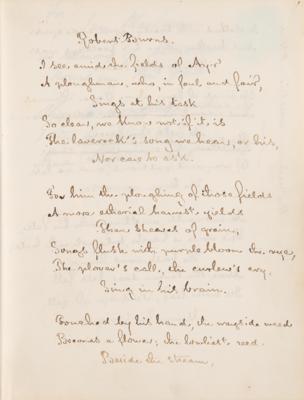 Robert Burns.
I see amid the fields of Ayr
A ploughman, who, in foul and fair,
Sings at his task
So clear, we know not if it is
The laverock's song we hear, or his,
Nor care to ask.
For him the ploughing of those fields
A more ethereal harvest yields
Than sheaves of grain;
Songs flush with purple bloom the rye,
The plover's call, the curlew's cry,
Sing in his brain.
Touched by his hand, the wayside weed
Becomes a flower; the lowliest reed
Beside the stream,